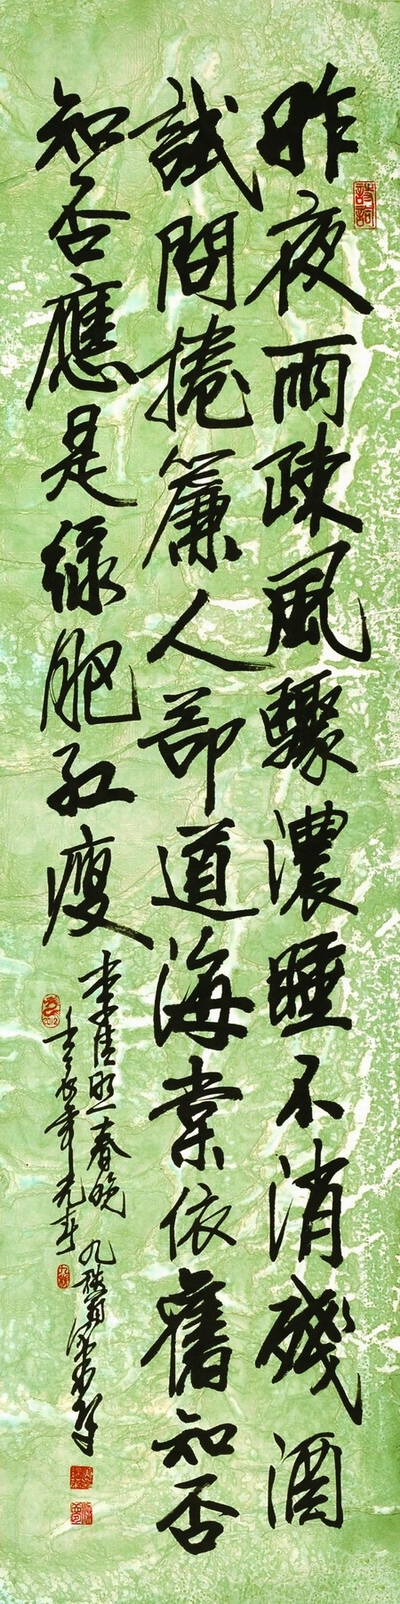 昨夜雨疎風驟濃睡不消殘酒
試問捲簾人卻道海棠依舊知否
知否應是綠肥紅瘦
李清照春晚
壬辰年元春